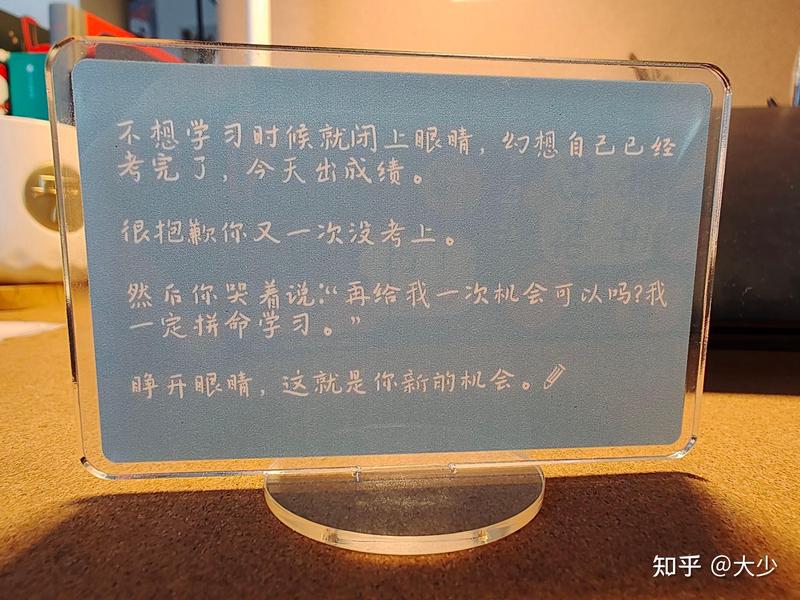 不想学习时候就闭上眼睛，幻想自己已经
考完了，今天出成绩。
很抱歉你又一次没考上。
然后你哭着说：“再给我一次机会可以吗？我
一定拼命学习。”
睁开眼睛，这就是你新的机会。
知乎 @大少